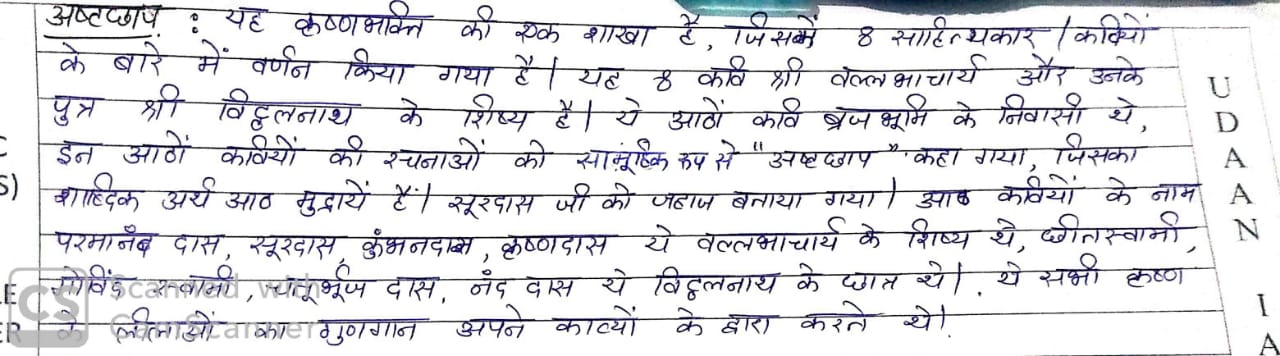 अष्टछाप : यह कृष्णभक्ति की एक शाखा है, जिसमें 8 साहित्यकार / कवियों
के बारे में वर्णन किया गया है। यह 8 कवि श्री वल्लभाचार्य और उनके
पुत्र श्री विट्ठलनाथ के शिष्य है। ये आठों कवि ब्रजभूमि के निवासी थे,
इन आठों कवियों की रचनाओं को सामूहिक रूप से "अष्टछाप" कहा गया, जिसका
शाब्दिक अर्थ आठ मुद्रायें हैं। सूरदास जी को जहाज बताया गया। आठ कवियों के नाम
परमानंद दास, सूरदास, कुंभनदास, कृष्णदास ये वल्लभाचार्य के शिष्य थे, छीतस्वामी,
गोविंद स्वामी, चतुर्भुज दास, नंद दास ये विट्ठलनाथ के छात्र थे। ये सभी कृष्ण
के लीलाओं का गुणगान अपने काव्यों के द्वारा करते थे।
CS Scanned with
CamScanner
S)
E
ER
U
D
A
A
N
I
A